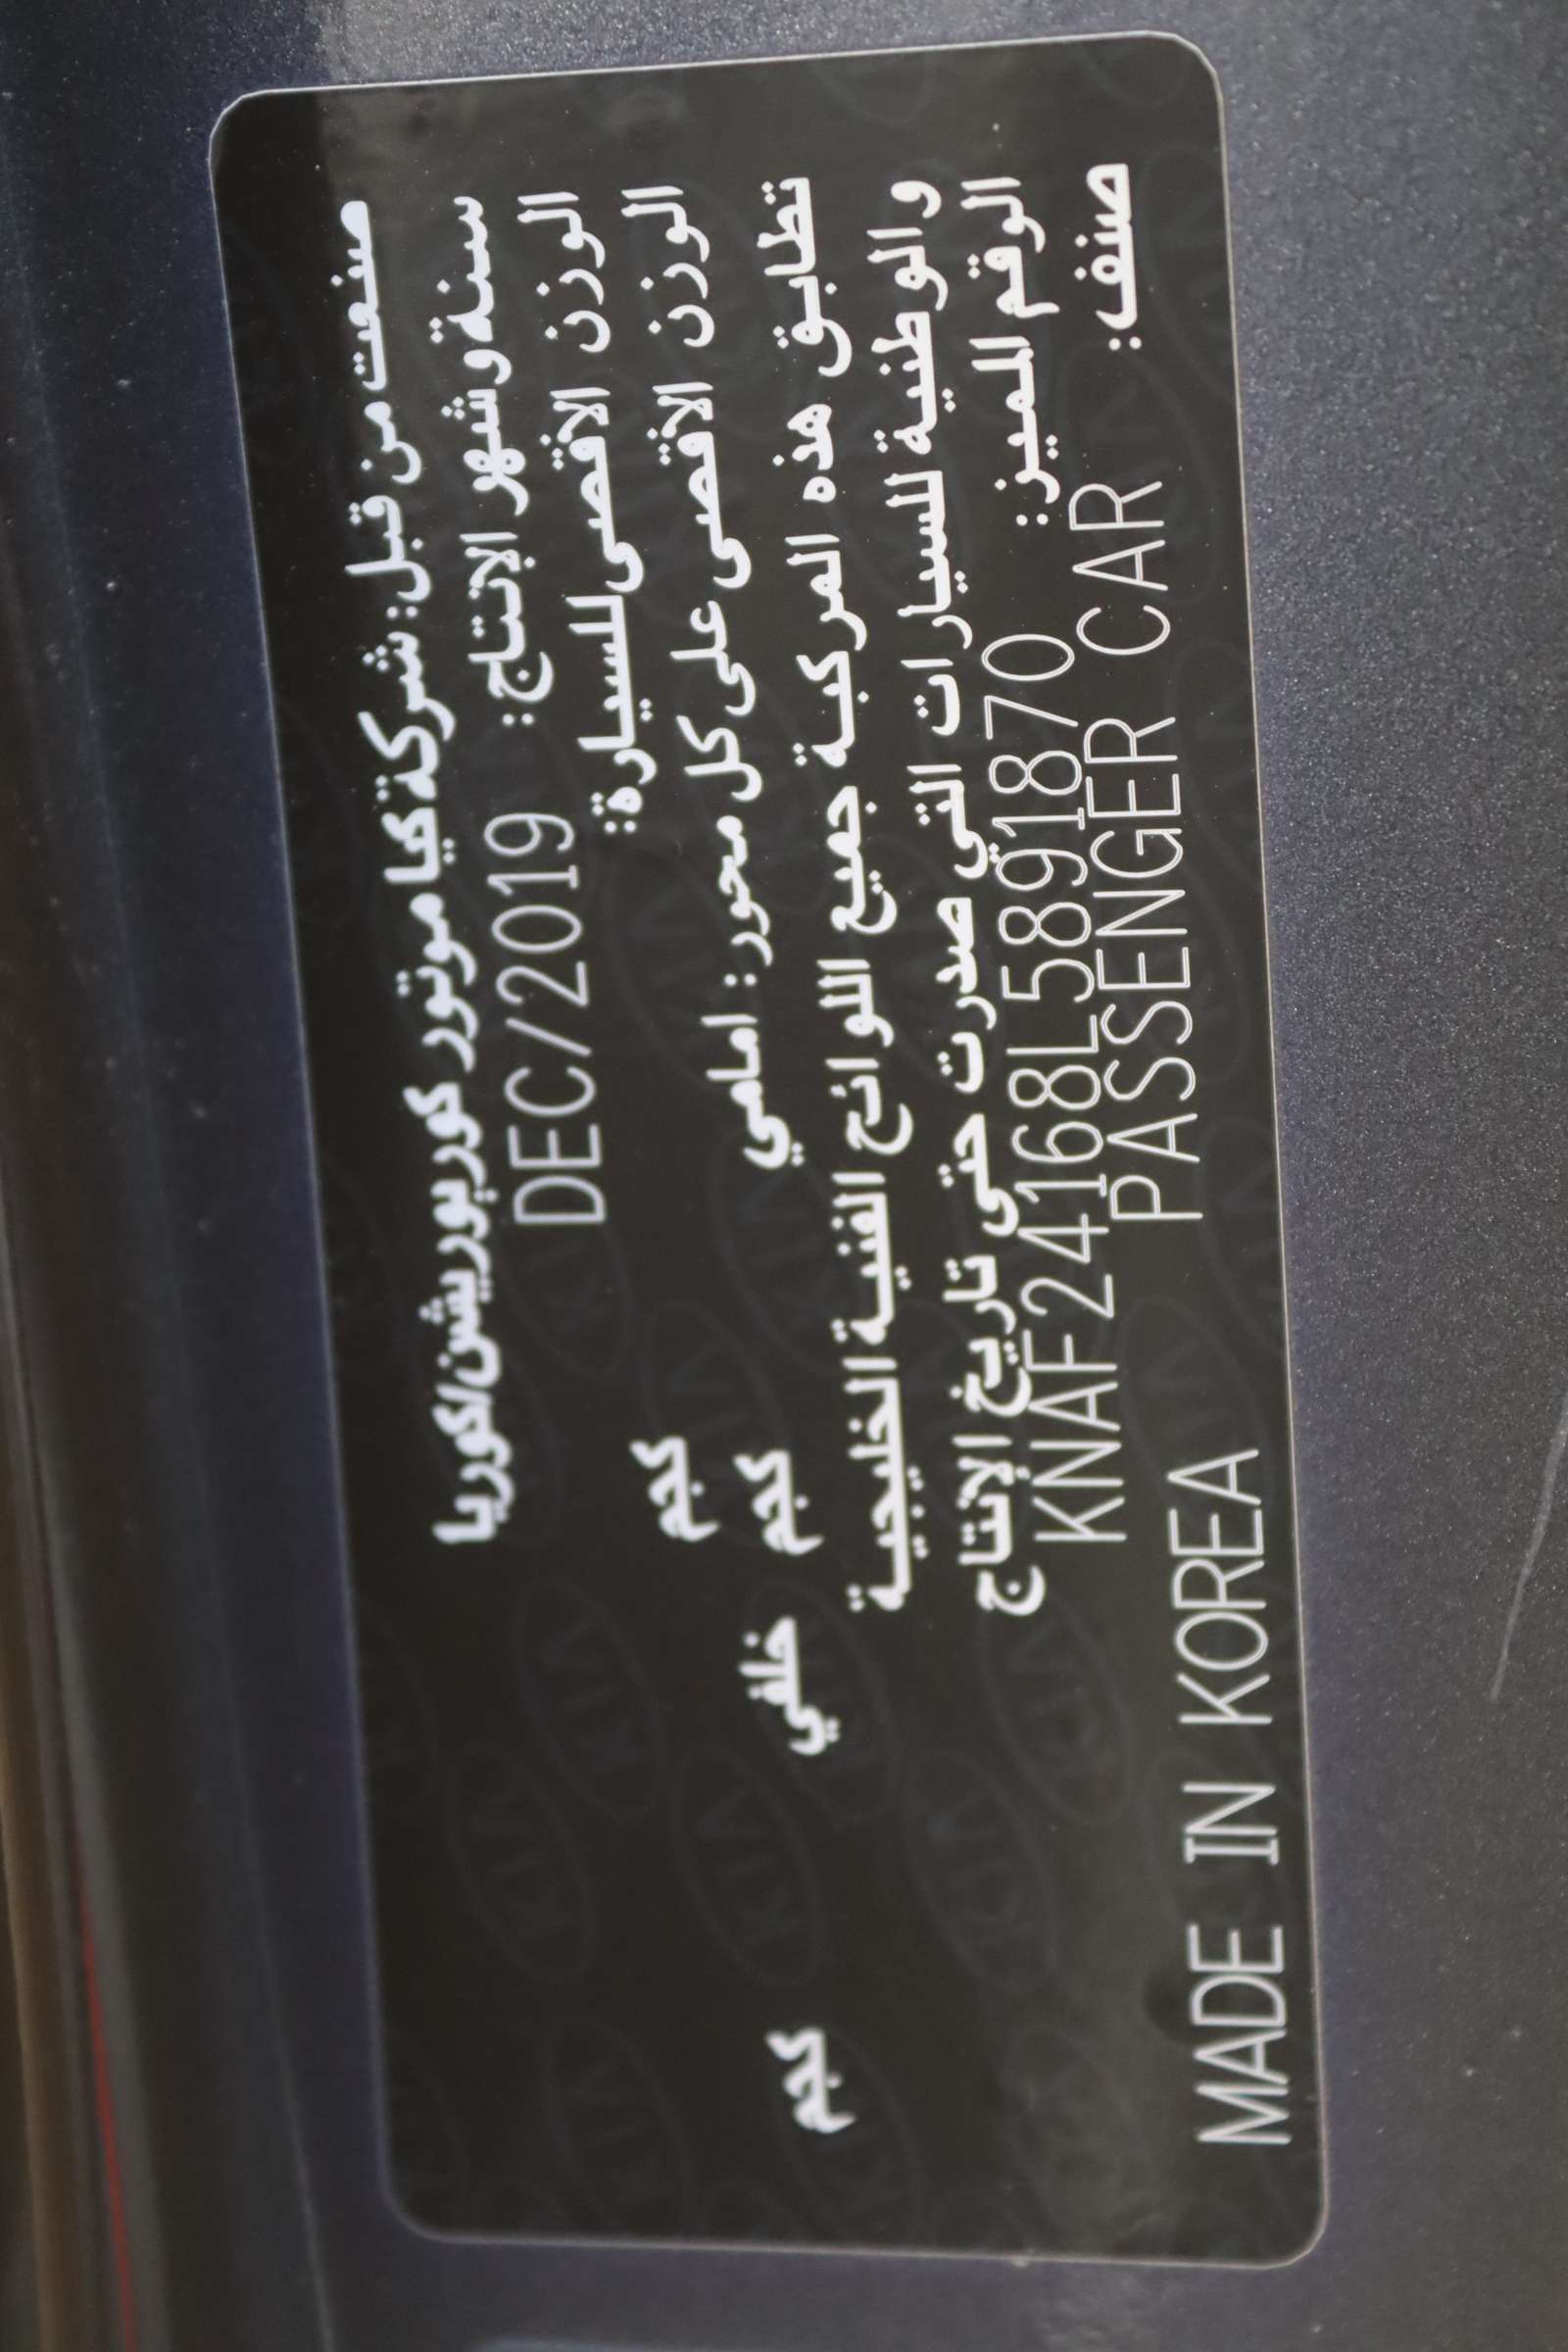 صنعت من قبل: شركة كيا موتور كوربوريشن/كوريا
سنة وشهر الإنتاج: DEC/2019
الوزن الاقصى للسيارة: كجم
الوزن الاقصى على كل محور: امامي كجم خلفي كجم
تطابق هذه المركبة جميع اللوائح الفنية الخليجية
والوطنية للسيارات التي صدرت حتى تاريخ الإنتاج
الرقم المميز: KNAF24168L5891870
صنف: PASSENGER CAR
MADE IN KOREA